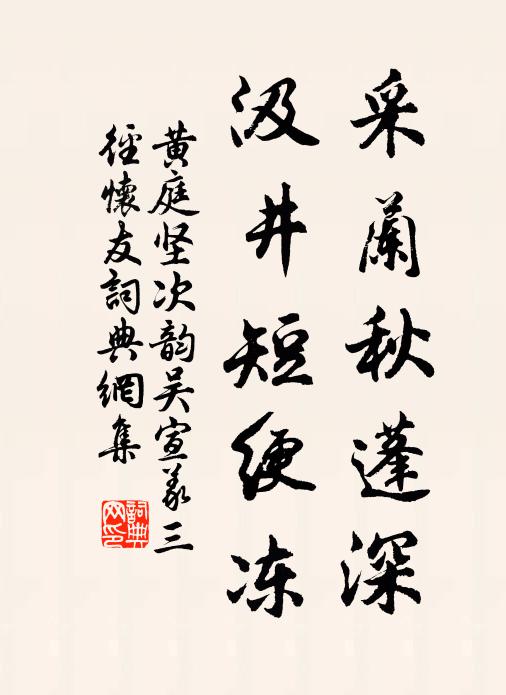 采蘭秋蓬深
汲井短綆冻
黄庭坚次韵吴宣義三
徑懷友詞典網集
詞典
网印